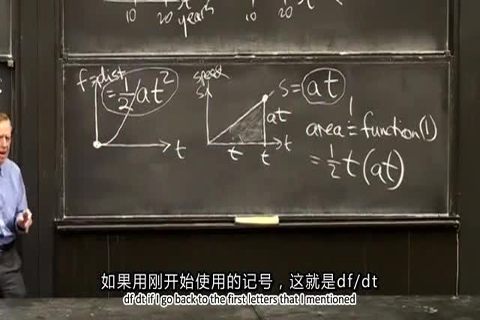 10 20 years
10 20
f = dist
= 1/2 at²
t
speed
s
s = at
at
t
t
t
area = function(1)
= 1/2 t(at)
如果用刚开始使用的记号，这就是df/dt
df dt if I go back to the first letters that I mentioned